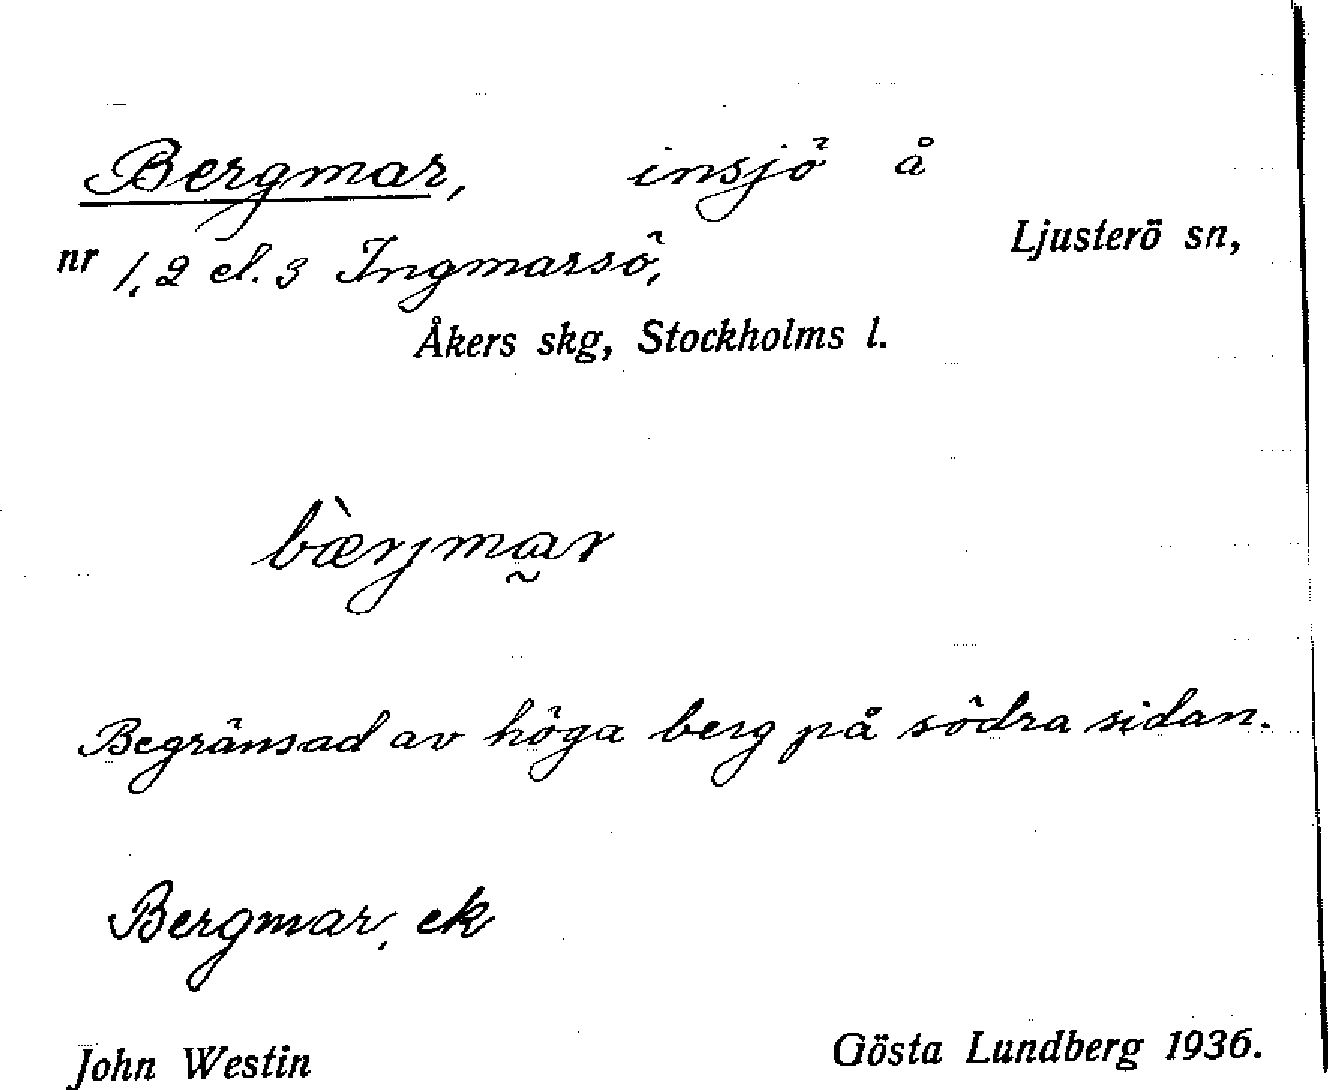 Bergmar, insjö å
Ljusterö sn,
nr 1, 2 el. 3 Ingmarsö,
Åkers skg, Stockholms l.
bær̀jmar̰
Begränsad av höga berg på södra sidan.
Bergmar, ek
John Westin Gösta Lundberg 1936.